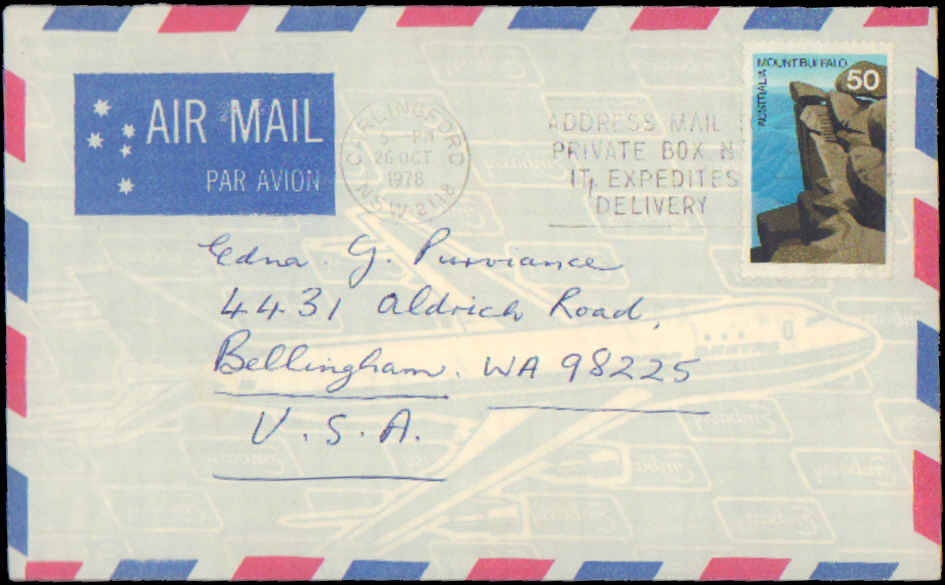 AIR MAIL
PAR AVION
CARLINGFORD
PM
26 OCT
1978
NSW 2118
ADDRESS MAIL
PRIVATE BOX N
IT EXPEDITES
DELIVERY
AUSTRALIA MOUNT BUFFALO
50
Edna G. Purviance
4431 Aldrich Road,
Bellingham. WA 98225
U.S.A.